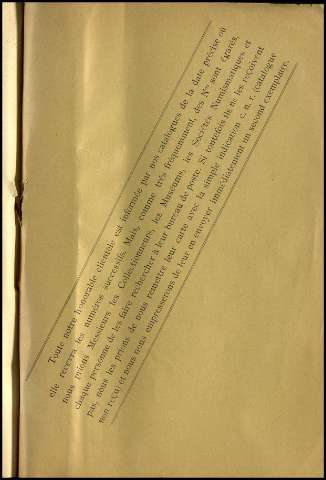 Toute notre honorable clientèle est informée par nos catalogues de la date précise où
elle recevra les numéros successifs. Mais, comme très fréquemment, des Nos sont égarés,
nous prions Messieurs les Collectionneurs, les Muséums, les Sociétés Numismatiques et
chaque personne de les faire rechercher à leur bureau de poste. Si toutefois ils ne les reçoivent
pas, nous les prions de nous remettre leur carte avec la simple indication c. n. r. (catalogue
non reçu) et nous nous empresserons de leur en envoyer immédiatement un second exemplaire.